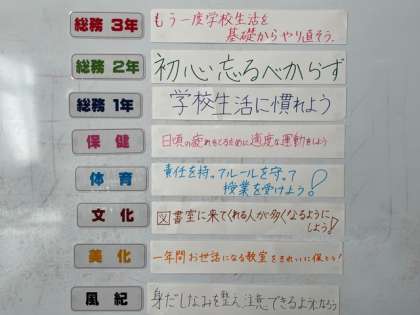 総務 3年
もう一度学校生活を
基礎からやり直そう。
総務 2年
初心忘るべからず
総務 1年
学校生活に慣れよう
保健
日頃の疲れをとるために適度な運動をしよう
体育
責任を持ってルールを守って
授業を受けよう!
文化
図書室に来てくれる人が多くなるように
しよう!
美化
一年間お世話になる教室をきれいに保とう!
風紀
身だしなみを整え、注意できるようになろう